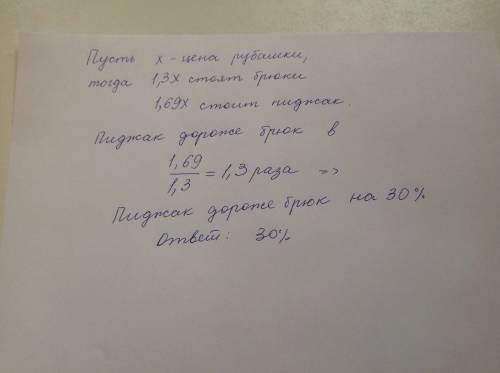 Пусть x - цена рубашки,
тогда 1,3x стоят брюки
1,69x стоит пиджак.
Пиджак дороже брюк в
1,69/1,3 = 1,3 раза =>
Пиджак дороже брюк на 30%
Ответ: 30%